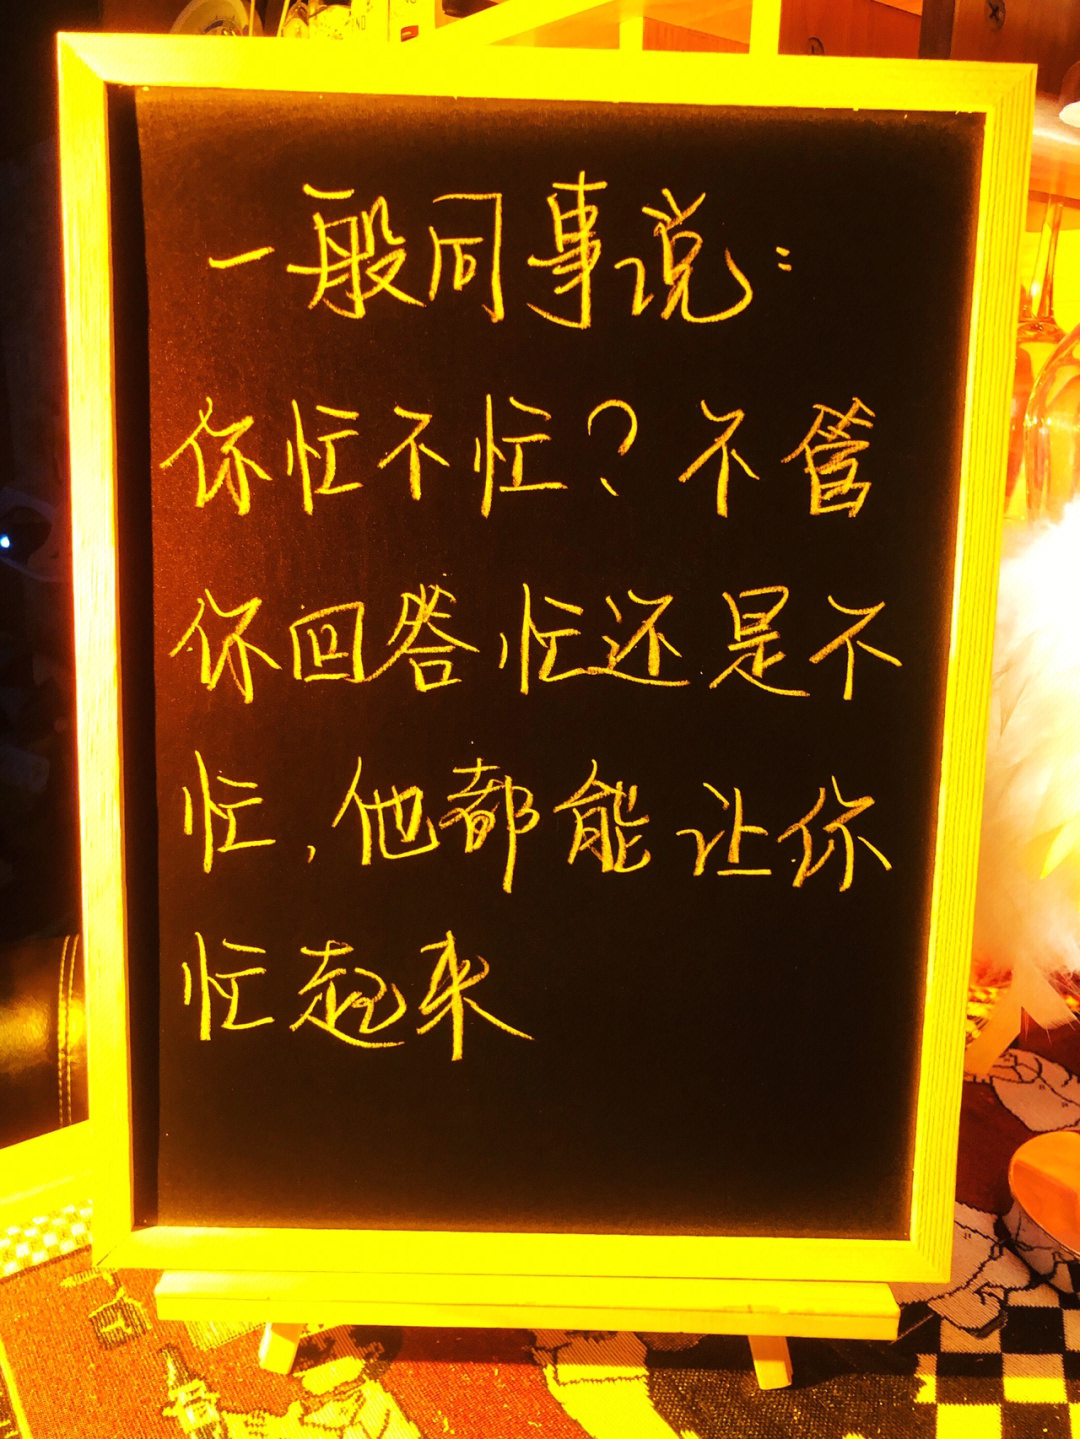 一般同事说：
你忙不忙？不管
你回答忙还是不
忙，他都能让你
忙起来